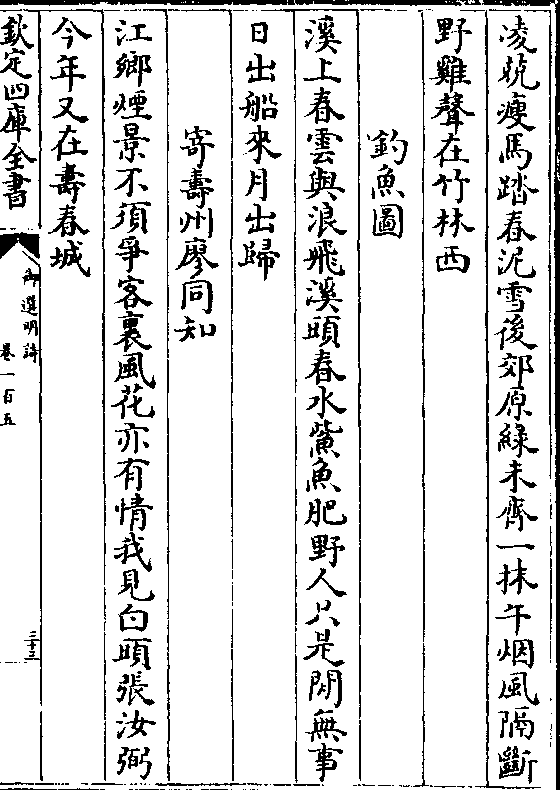 凌兢瘦馬踏春泥雪後郊原綠未齊一抹午烟風隔斷
野雞聲在竹林西
釣魚圖
溪上春雲與浪飛溪頭春水鮆魚肥野人只是閒無事
日出船來月出歸
寄壽州廖同知
江鄉煙景不須爭客裏風花亦有情我見白頭張汝弼
今年又在壽春城
欽定四庫全書
御選明詩
卷一百五
三十三